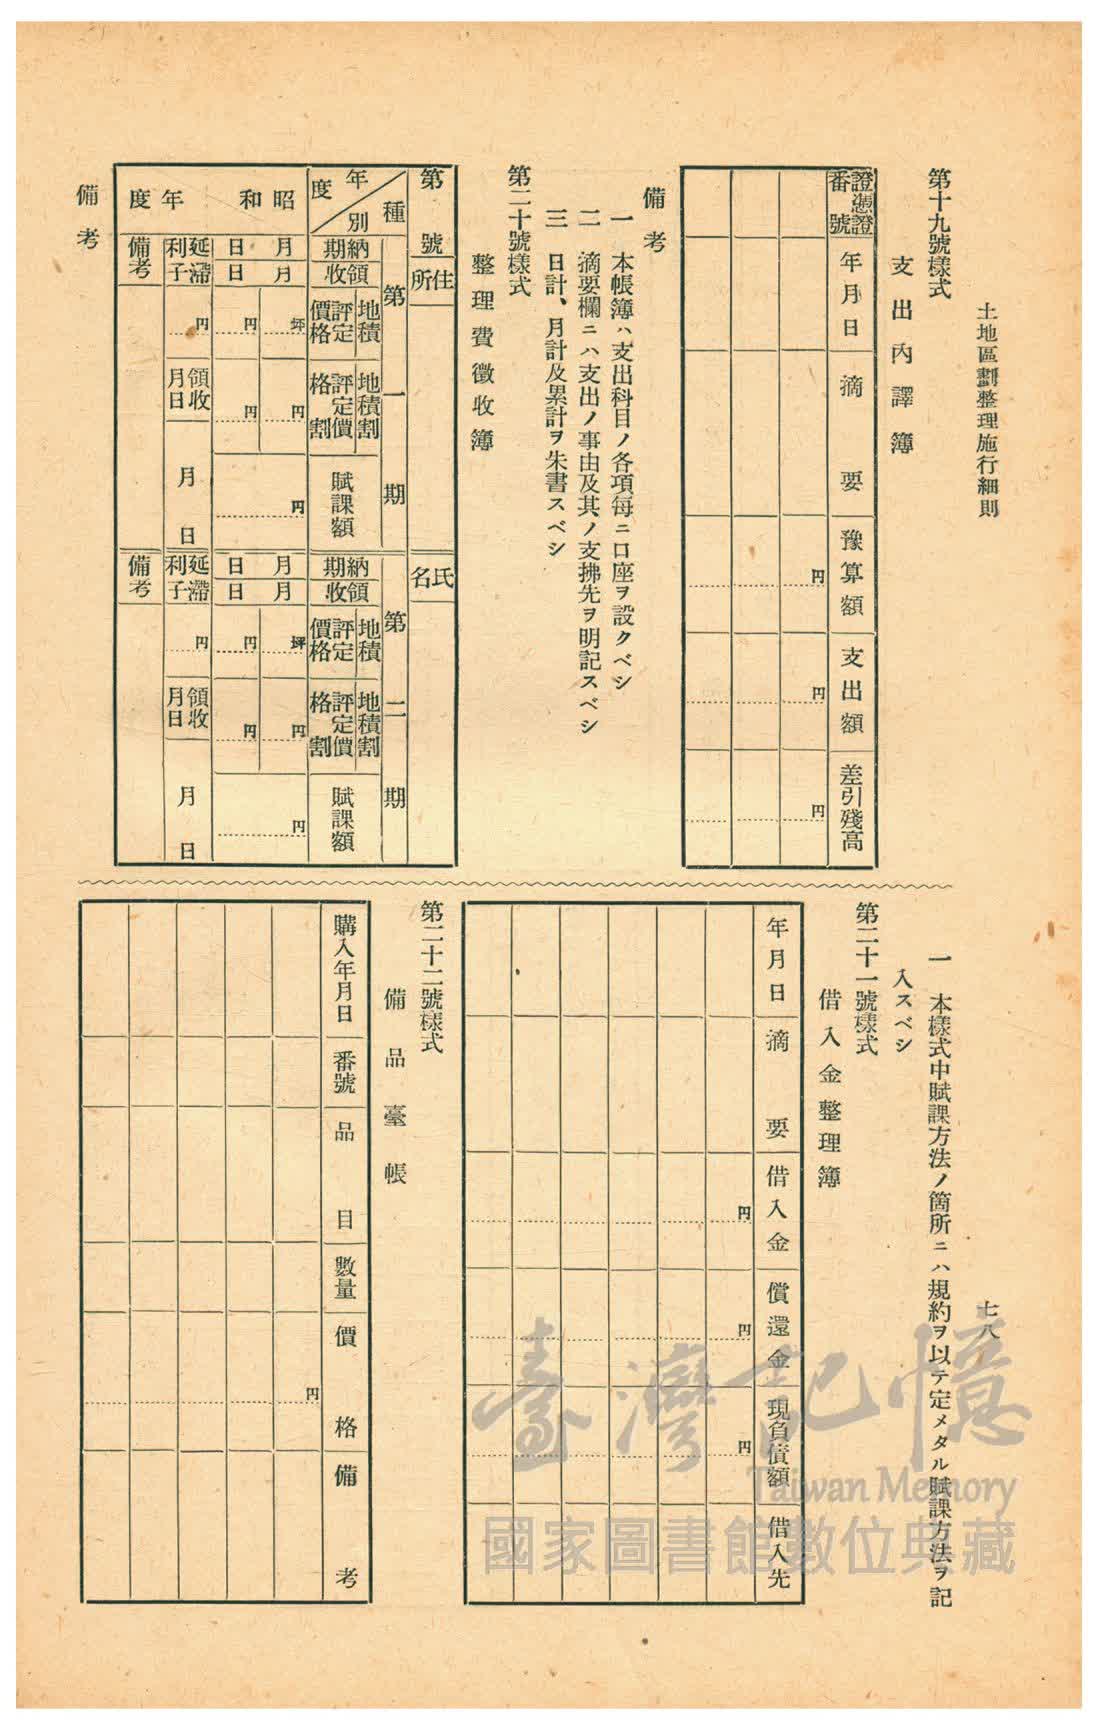 土地區劃整理施行細則
七八
第十九號樣式
支出內譯簿
證憑證番號
年月日
摘要
豫算額
支出額
差引殘高
円
円
円
備考
一 本帳簿ハ支出科目ノ各項每ニ口座ヲ設クベシ
二 摘要欄ニハ支出ノ事由及其ノ支拂先ヲ明記スベシ
三 日計、月計及累計ヲ朱書スベシ
第二十號樣式
整理費徵收簿
第號
住所
氏名
種別
年度
第一期
第二期
納期
領收
地積
評定價格
地積割
評定價格割
賦課額
納期
領收
地積
評定價格
地積割
評定價格割
賦課額
昭和年度
月日
月日
坪
円
円
円
円
月日
月日
坪
円
円
円
円
延滯利子
円
領收月日
月日
延滯利子
円
領收月日
月日
備考
備考
備考
一 本樣式中賦課方法ノ箇所ニハ規約ヲ以テ定メタル賦課方法ヲ記
入スベシ
第二十一號樣式
借入金整理簿
年月日
摘要
借入金
償還金
現負債額
借入先
円
円
円
第二十二號樣式
備品臺帳
購入年月日
番號
品目
數量
價格
備考
円
臺灣記憶
Taiwan Memory
國家圖書館數位典藏